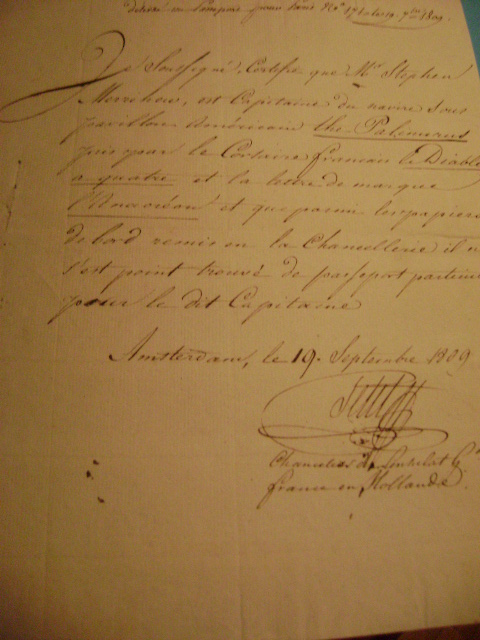 Je Soussigné, Certifie que Mr. Stephen
Merrihew, est Capitaine du navire Sous
pavillon Américain the Palinurus
pris par le Corsaire francais le Diable
a quatre et la lettre de marque
l'Anacréon et que parmi les papiers
de bord remis en la Chancellerie il n
s'est point trouvé de passeport particu
pour le dit Capitaine
Amsterdam, le 19. Septembre 1809
Chancelier du Consulat Gal
france en Hollande.